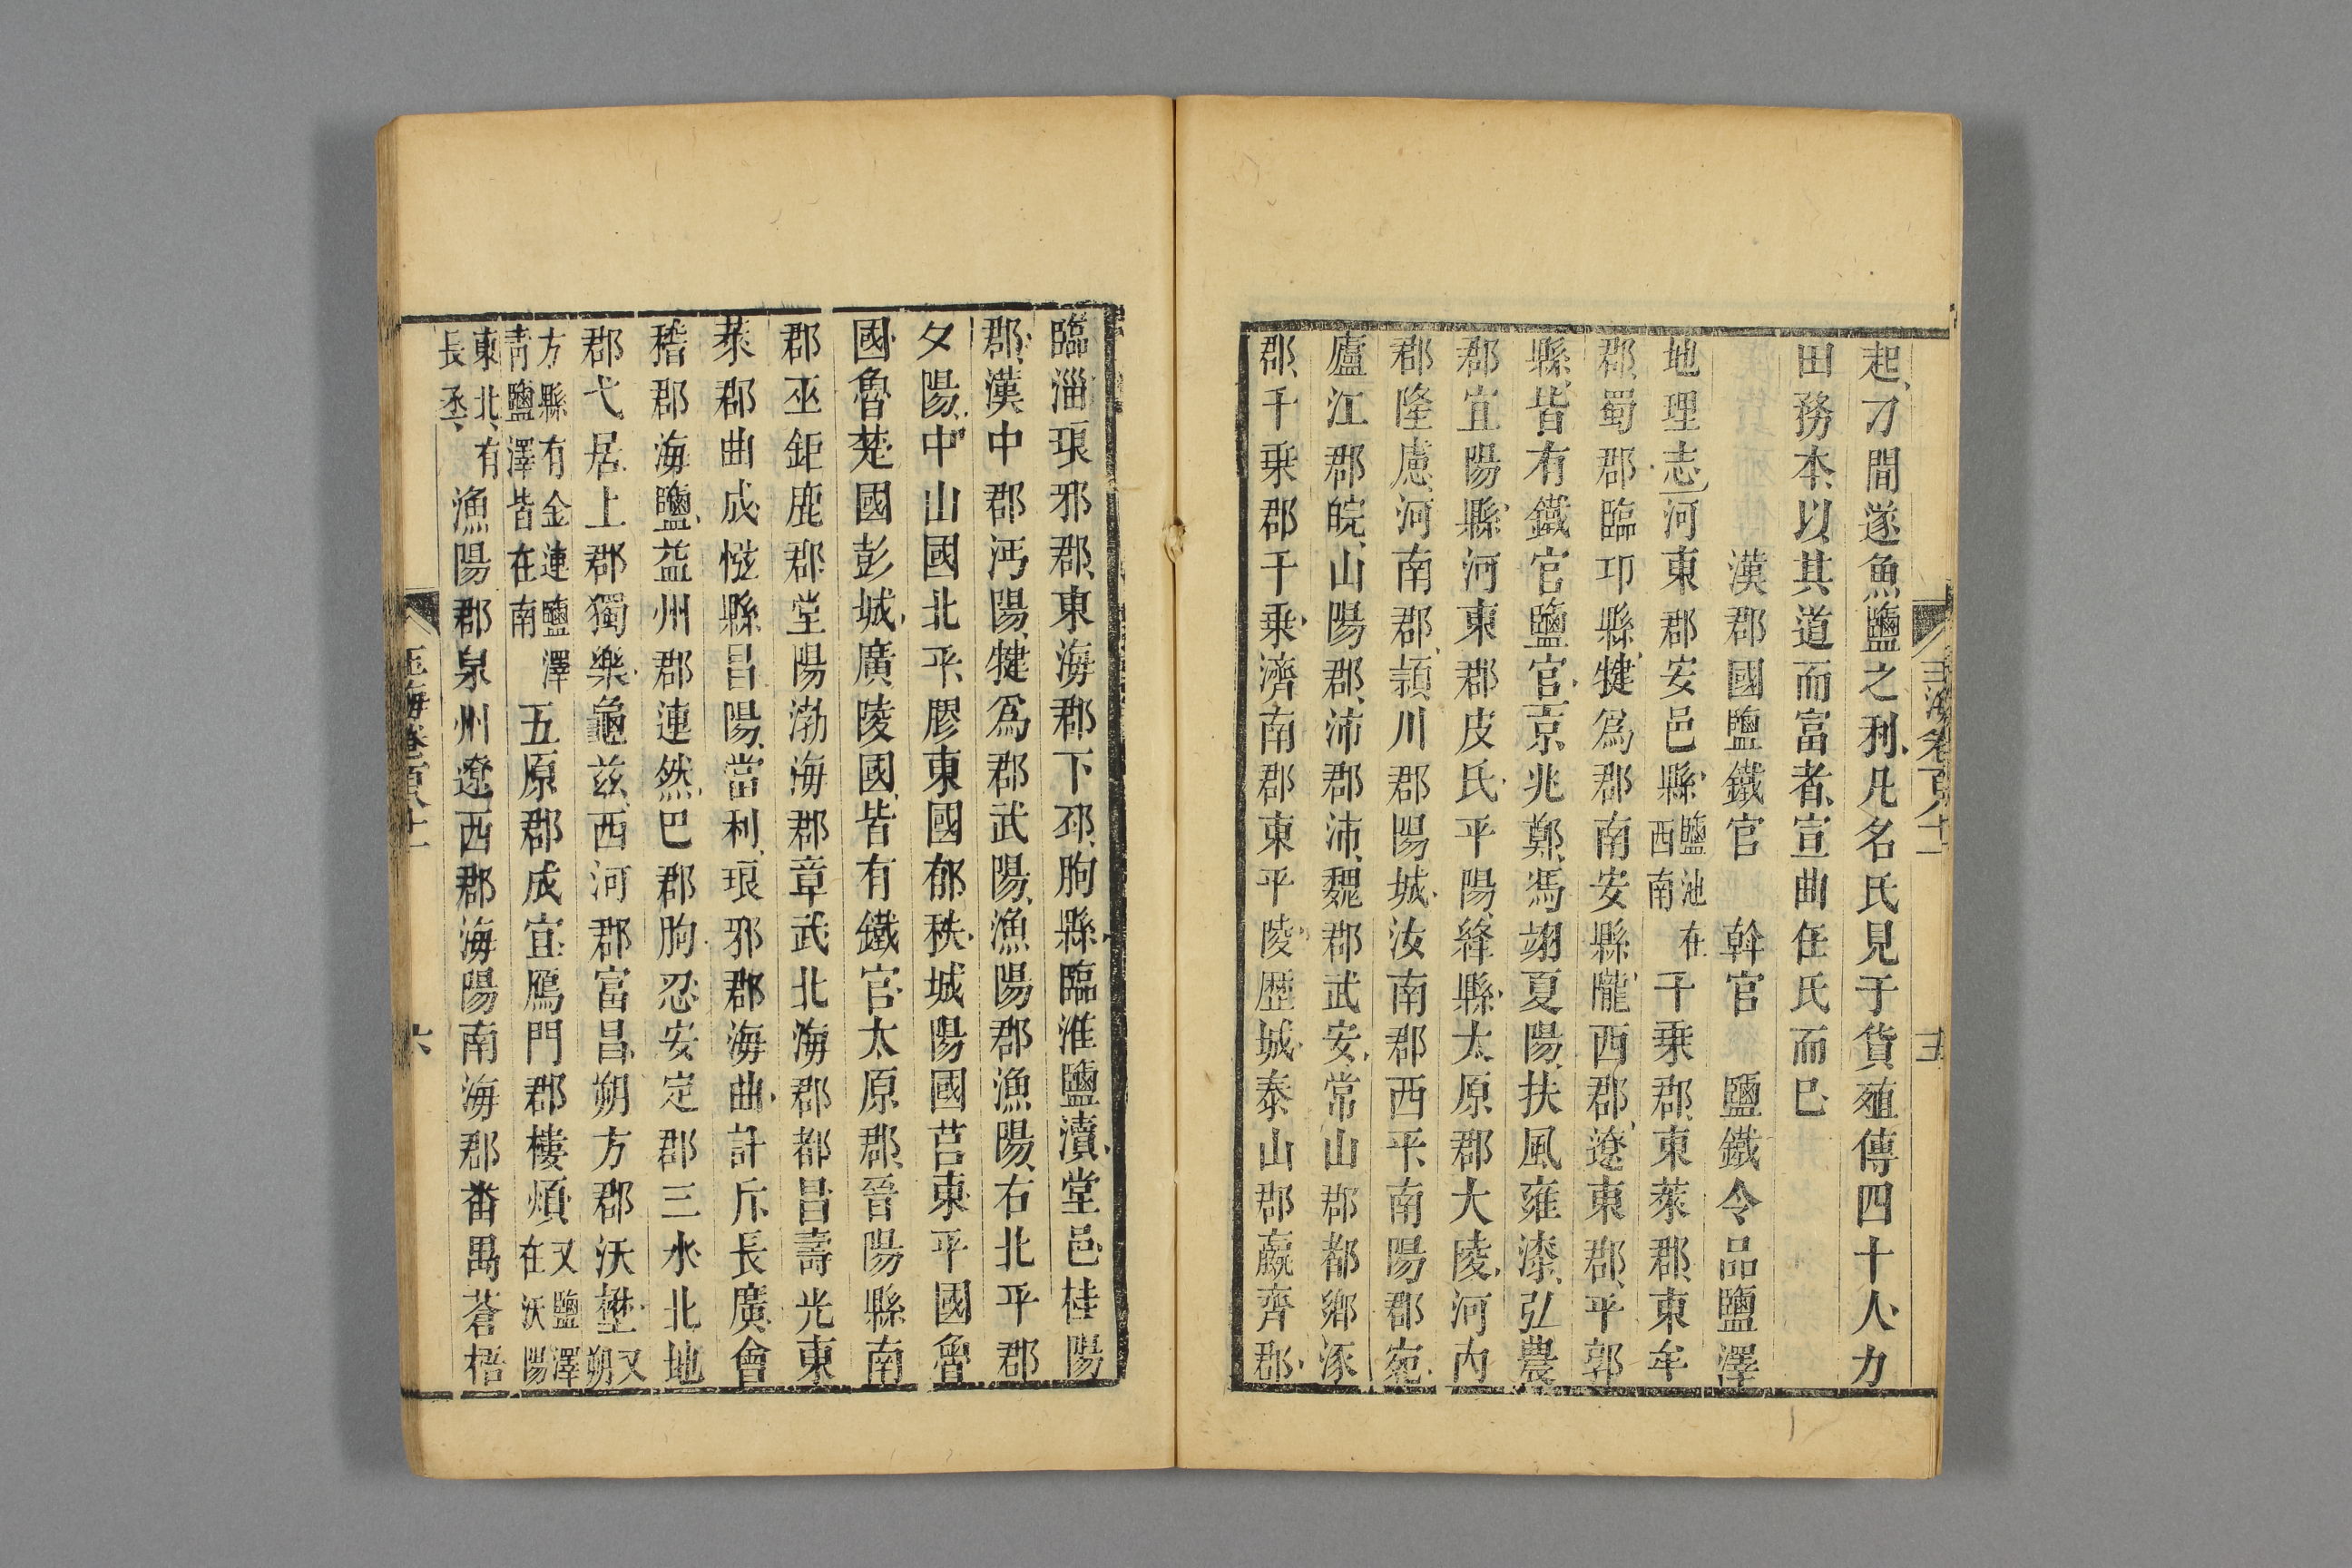 起刁間遂魚鹽之利凡名氏見于貨殖傳四十人力
田務本以其道而富者宣曲任氏而已
漢郡國鹽鐵官　斡官　鹽鐵令品鹽澤
地理志河東郡安邑縣鹽池在西南千乗郡東萊郡東牟
郡蜀郡臨邛縣犍爲郡南安縣隴西郡遼東郡平郭
縣皆有鐵官鹽官京兆鄭馮翊夏陽扶風雍漆弘農
郡宜陽縣河東郡皮氏平陽絳縣太原郡大陵河內
郡隆慮河南郡潁川郡陽城汝南郡西平南陽郡宛
廬江郡皖山陽郡沛郡沛魏郡武安常山郡都鄉涿
郡千乗郡千乗濟南郡東平陵歷城泰山郡嬴齊郡
臨淄琅邪郡東海郡下邳朐縣臨淮鹽瀆堂邑桂陽
郡漢中郡沔陽犍爲郡武陽漁陽郡漁陽右北平郡
夕陽中山國北平膠東國郁秩城陽國莒東平國魯
國魯楚國彭城廣陵國皆有鐵官太原郡晉陽縣南
郡巫鉅鹿郡堂陽渤海郡章武北海郡都昌壽光東
萊郡曲成㡉縣昌陽當利琅邪郡海曲計斤長廣會
稽郡海鹽益州郡連然巴郡朐忍安定郡三水北地
郡弋居上郡獨樂龜兹西河郡富昌朔方郡沃壄又朔
方縣有金連鹽澤青鹽澤皆在南五原郡成宜鴈門郡樓煩又鹽澤在沃陽
東北有長丞漁陽郡泉州遼西郡海陽南海郡番禺蒼梧
玉海卷百八十一
六